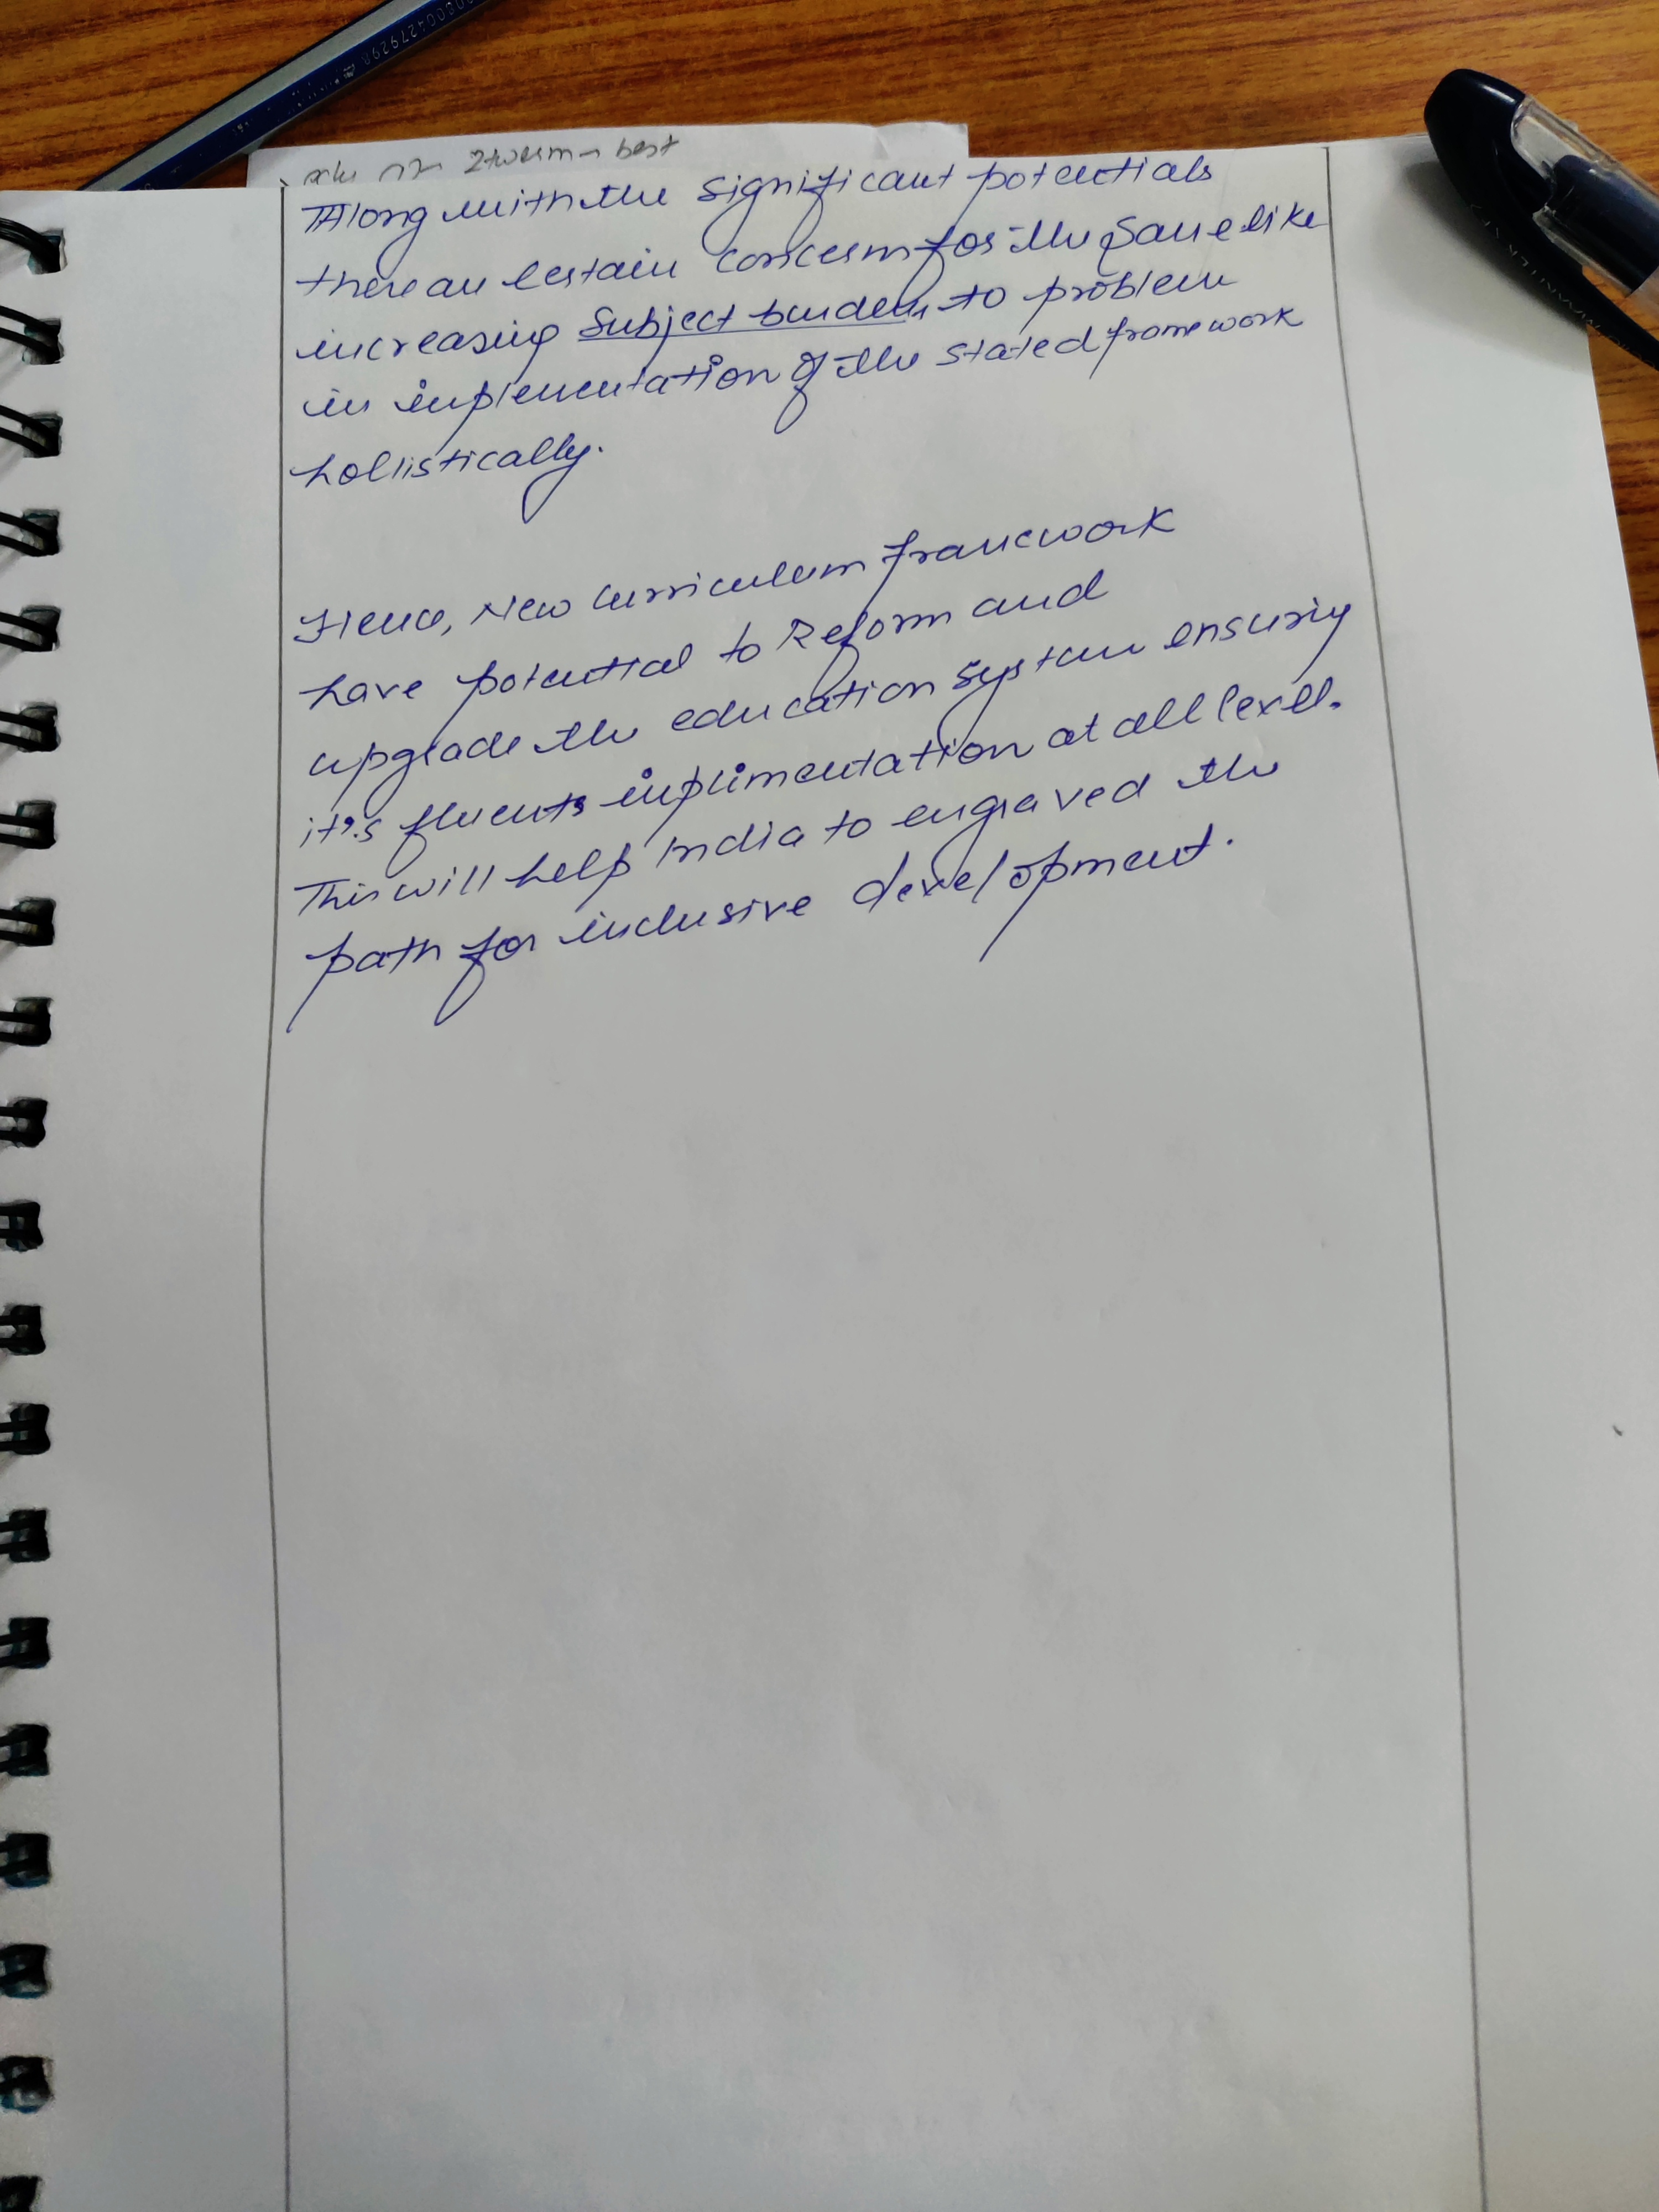 best
Along with the significant potentials
there are certain concern for the same like
increasing subject burden to problem
in implementation of the stated framework
hollistically.
Hence, New curriculum framework
have potential to Reform and
upgrade the education system ensuring
it's fluents implimentation at all level.
This will help India to engraved the
path for inclusive development.